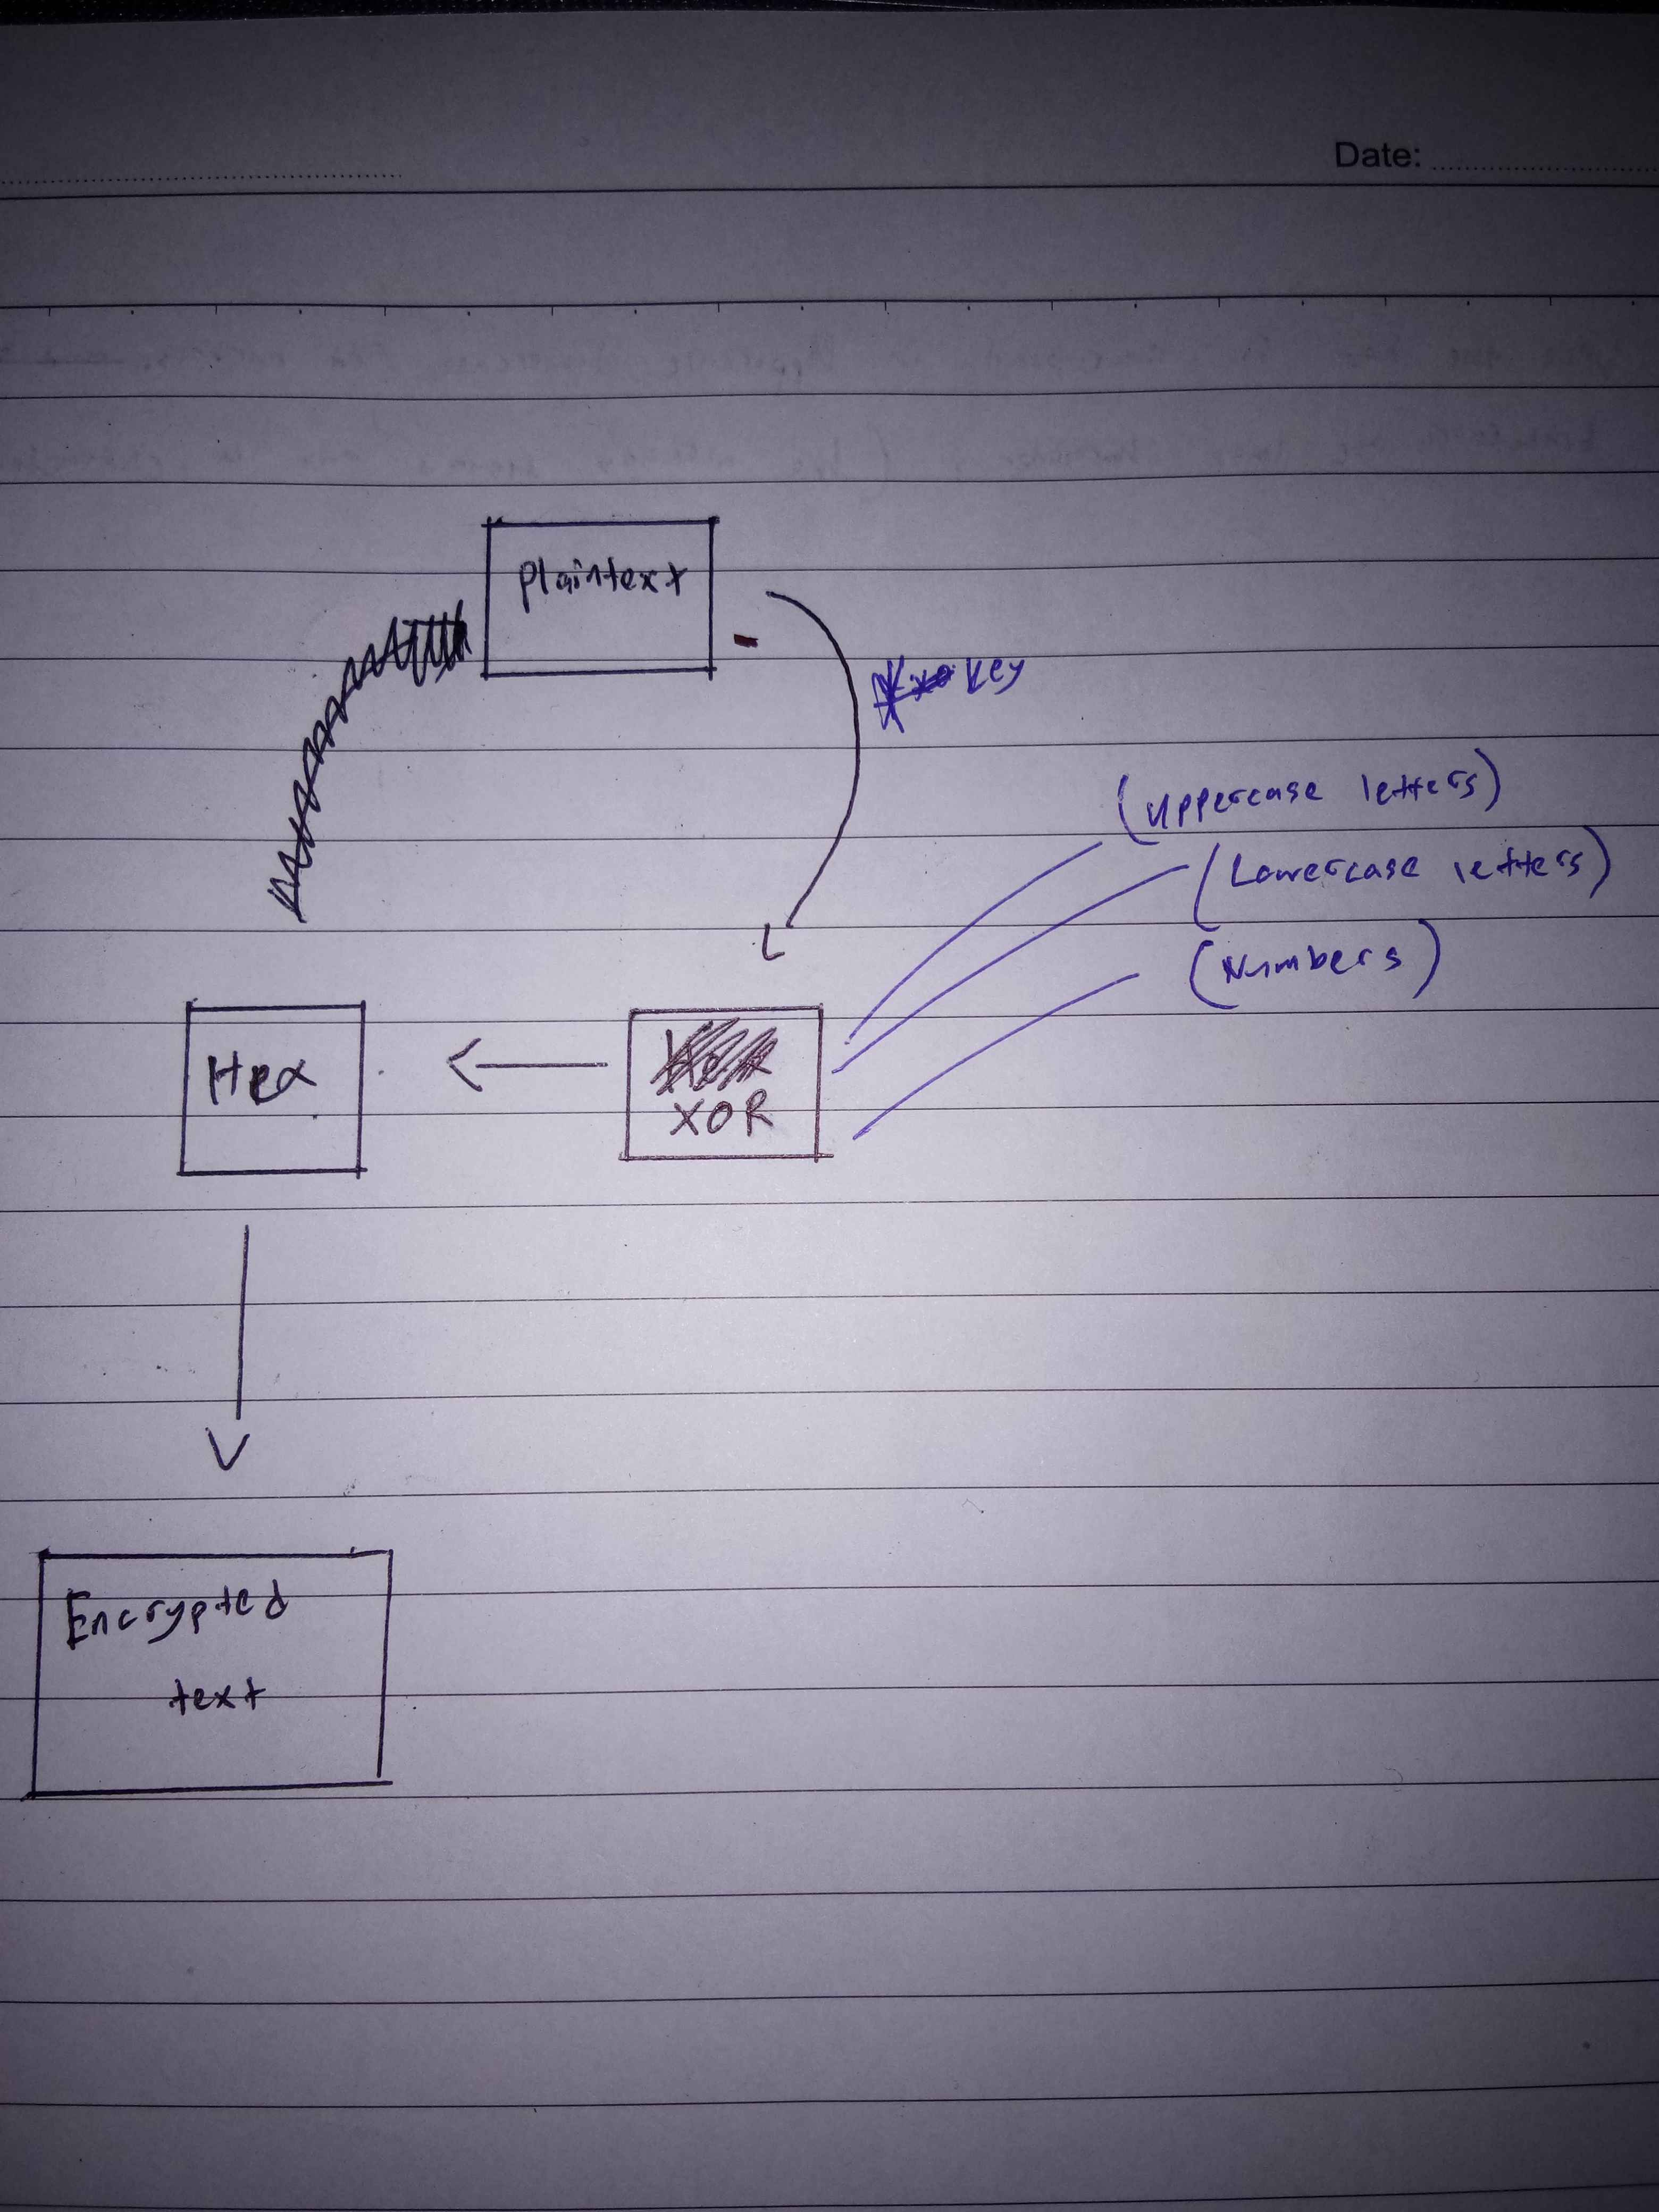 Date:
Plaintext
Key
(Uppercase letters)
(Lowercase letters)
(Numbers)
Hex
XOR
Encrypted
text